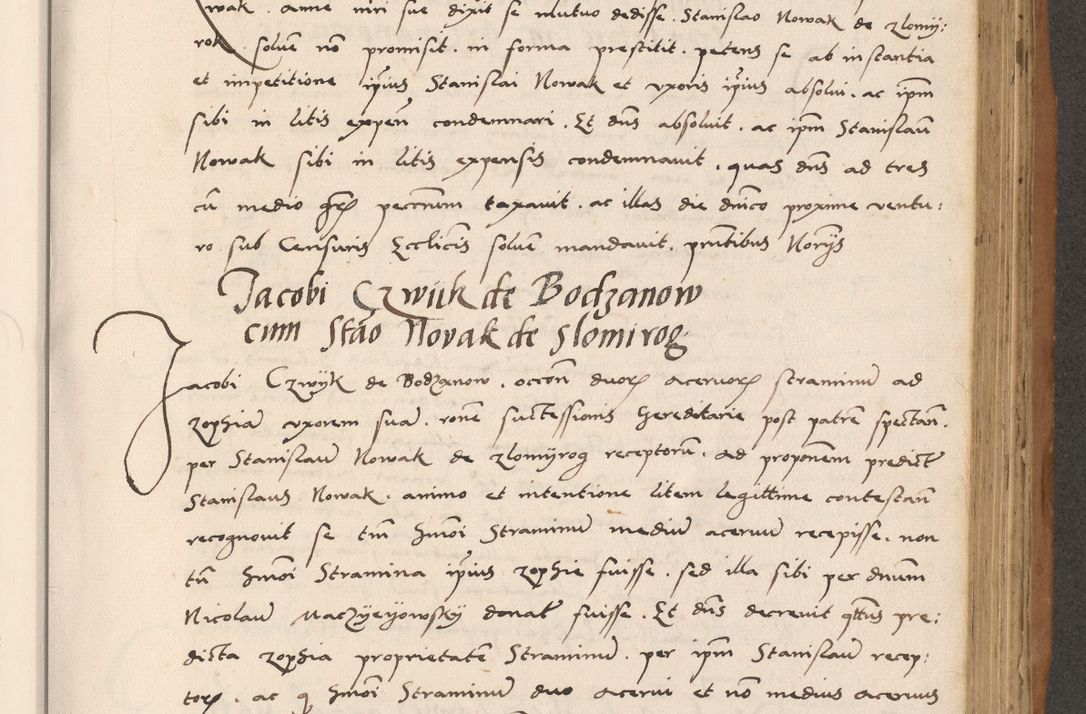 wak. anime mri sue dixit se mutuo dedisse. Stanislao Nowak de zlomij:
rok. solvere nō promisit. in forma prestitit. petens se ab instantia
et impetitione ipius Stanislai Nowak et vxoris ipius absolui. ac ipm
sibi in litis expen condemnari. Et dns absoluit. ac ipm Stanislaū
Nowak sibi in litis expensis condemnauit. quas dns ad tres
cū medio pecc̄num taxauit. ac illas die dnico proxime ventu:
ro sub Censuris Ecclicis solven mandauit. pntibus Norijs
Jacobi Czwiik de Bodzanow
cum Stāo Novak de Slomirog
Jacobi Czwijk de Bodzanow. occōn duoꝝ aceruoꝝ straminū ad
zophiā vxorem suā. rōne suctessionis hereditarie post patrē spectan̄.
per Stanislaū Nowak de zlomijrog receptorū. ad proponem predict
Stanislaus Nowak. animo et intentione litem legittime contestan̄
recognouit se tm̄ hmōi Straminū mediū aceruū recepisse. non
tn̄ hmōi Stramina ipius zophie fuisse. sed illa sibi per dnum
Nicolaū Maczijeijowskij donat fuisse. Et dns decreuit qttus pre:
dicta zophia proprietatē Straminū. per ipm Stanislaū recep:
toꝝ. ac q hmōi Straminū duo acerui et nō medius aceruus